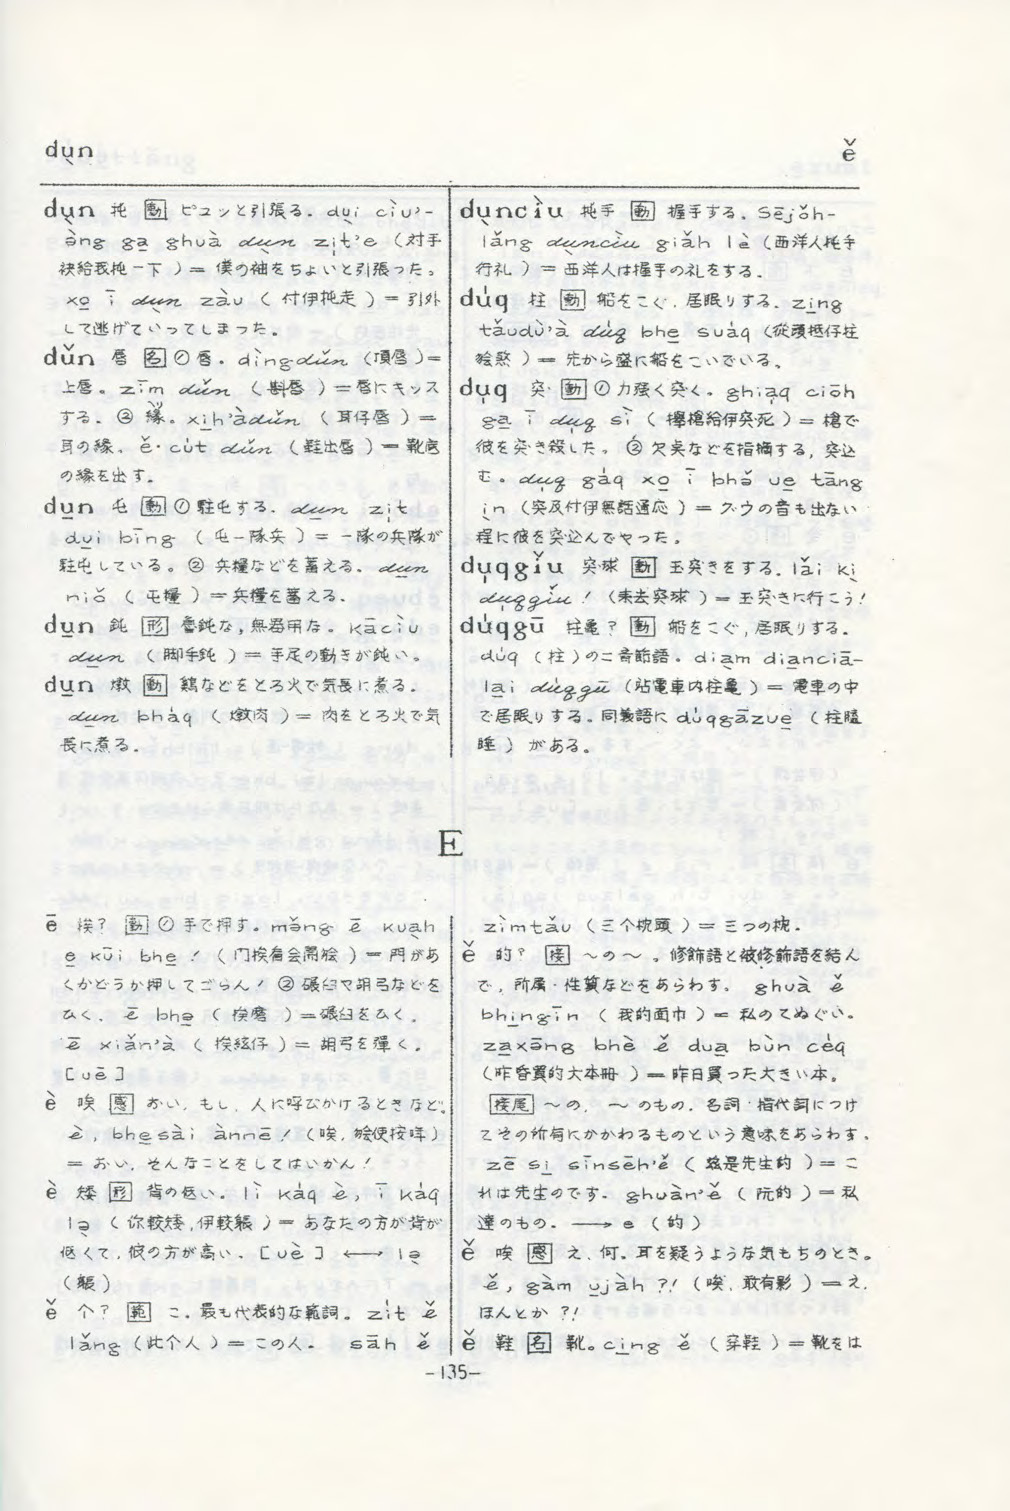 dṳn
ě
dṳn 扽 動 ピュッと引張る. dṳi cìu'-
àng ga̱ ghuà dṳn zi̤t'e (对手
䘼給我扽一下 ) = 僕の袖をちょいと引張った。
xo̱ ī dṳn zàu ( 付伊扽走 ) = 引外
して逃げていってしまった。
dǔn 唇 名 ① 唇. dìngdǔn (頂唇 )=
上唇。 zīm dǔn ( 斟唇 ) = 唇にキッス
する. ② 縁。 xi̤h'àdǔn ( 耳仔唇 ) =
耳の縁. ě·cu̍t dǔn ( 鞋出唇 ) = 靴底
の縁を出す.
du̱n 屯 動 ① 駐屯する. du̱n zi̤t
du̱i bīng ( 屯一隊兵 ) = 一隊の兵隊が
駐屯している。 ② 兵糧などを蓄える. du̱n
niǒ ( 屯糧 ) = 兵糧を蓄える.
du̱n 鈍 形 魯鈍な, 無器用な. kācìu
du̱n ( 脚手鈍 ) = 手足の動きが鈍い。
du̱n 燉 動 鶏などをとろ火で気長に煮る.
du̱n bha̍q ( 燉肉 ) = 肉をとろ火で気
長に煮る.
dṳncìu 扽手 動 握手する. Sējǒh-
lǎng dṳncìu giǎh lè (西洋人扽手
行礼 ) = 西洋人は握手の礼をする.
du̍q 柱 動 船をこぐ. 居眠りする. zīng
tǎudù'à du̍q bhe̱ suáq (從頭抵仔柱
𣍐煞 ) = 先から盛に船をこいでいる。
dṳq 突 動 ① 力強く突く. ghia̤q ciōh
ga̱ ī dṳq sì ( 攑槍給伊突死 ) = 槍で
彼を突き殺した。 ② 欠点などを指摘する, 突込
む。 dṳq gáq xo̱ ī bhǒ ue̱ tāng
ìn (突及付伊無話通応 ) = グウの音も出ない
程に彼を突込んでやった。
dṳqgǐu 突球 動 玉突きをする. lǎi kì
dṳqgǐu ! (来去突球 ) = 玉突きに行こう!
du̍qgū 柱亀? 動 船をこぐ, 居眠りする.
du̍q (柱)の二音節語. diàm diǎnciā-
la̱i du̍qgū (站電車内柱亀 ) = 電車の中
で居眠りする. 同義語に du̍qgāzue̱ ( 柱瞌
睡 ) がある.
E
ē 挨? 動 ① 手で押す. mǒng ē kuàh
e̱ kūi bhe̱ ! ( 门挨看会開𣍐 ) = 門があ
くかどうか押してごらん! ② 碾臼や胡弓などを
ひく. ē bho̱ ( 挨磨 ) = 碾臼をひく.
ē xiǎn'à ( 挨絃仔 ) = 胡弓を弾く.
[uē]
è 唉 感 おい, もし. 人に呼びかけるときなど.
è, bhe̱sài ànnē ! (唉, 𣍐使按呢)
= おい, そんなことをしてはいかん!
è 矮 形 背の低い. lì káq è, ī káq
lo̱ ( 你較矮, 伊較躼 ) = あなたの方が背が
低くて, 彼の方が高い. [uè] ⟷ lo̱
(躼)
ě 个? 範 こ. 最も代表的な範詞. zi̍t ě
lǎng (此个人 ) = この人. sāh ě
zìmtǎu (三个枕頭 ) = 三つの枕.
ě 的? 接 ~の~. 修飾語と被修飾語を結ん
で, 所属・性質などをあらわす. ghuà ě
bhi̱ngīn ( 我的面巾 ) = 私のてぬぐい。
za̱xāng bhè ě dua̱ bùn céq
(昨昏買的大本冊 ) = 昨日買った大きい本。
接尾 ~の, ~のもの. 名詞・指代詞につけ
てその所有にかかわるものという意味をあらわす.
zē si̱ sīnsēh'ě ( 這是先生的 ) = こ
れは先生のです. ghuàn'ě ( 阮的 ) = 私
達のもの. ⟶ e (的)
ě 唉 感 え, 何。耳を疑うような気もちのとき。
ě, gàm u̱jàh ?! (唉, 敢有影 ) = え,
ほんとか ?!
ě 鞋 名 靴。ci̱ng ě ( 穿鞋 ) = 靴をは
-135-